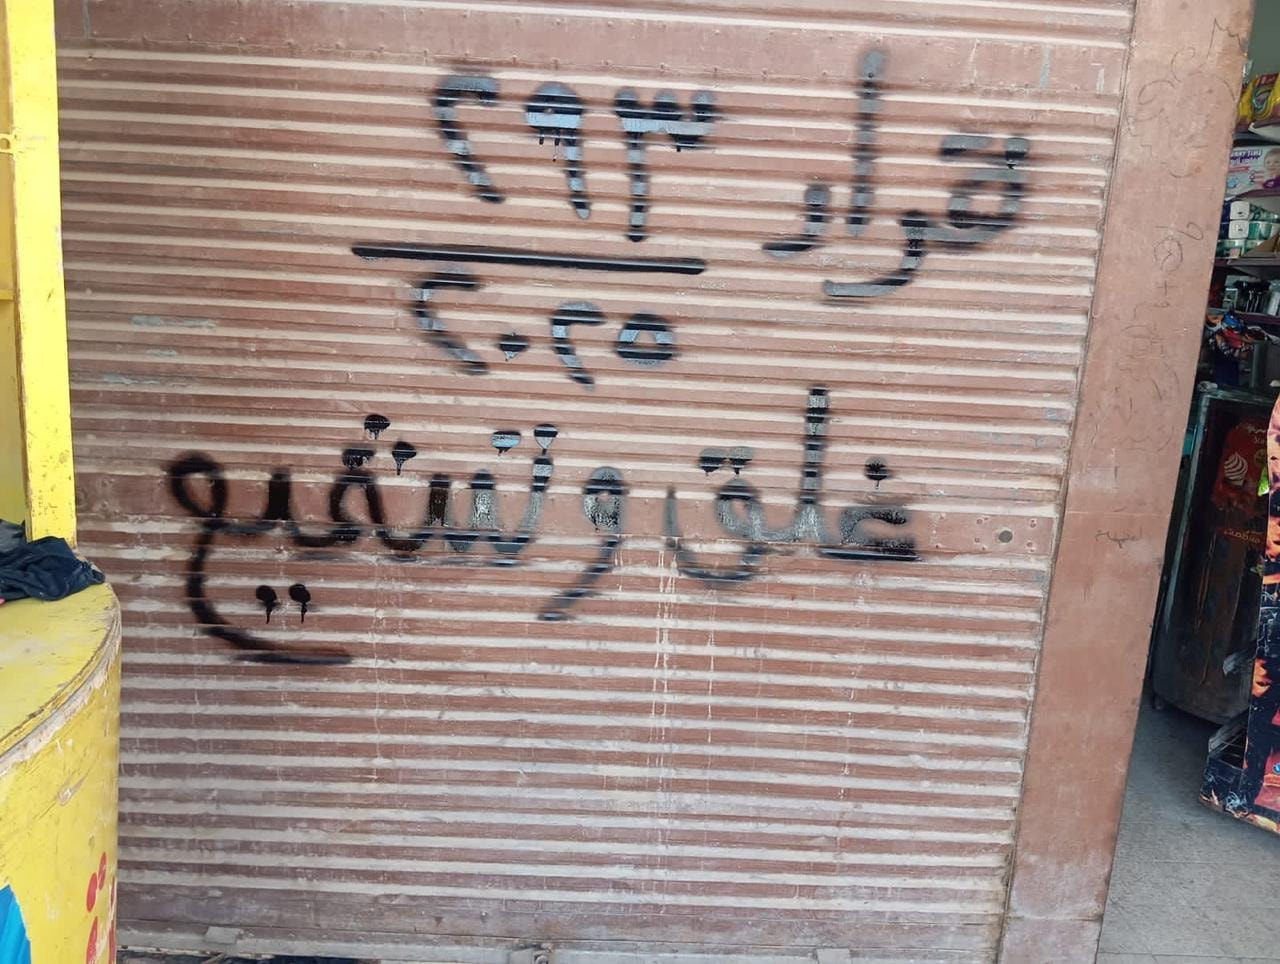 قرار ٢٩٣
٢٠٢٥
غلق وتشقيع